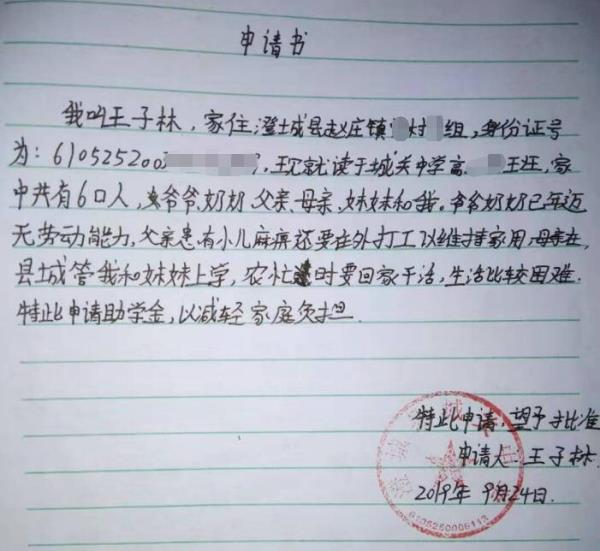 申请书
我叫王子林,家住澄城县赵庄镇 村 组,身份证号
为:610525200 ,现就读于城关中学高 王班,家
中共有6口人,爷爷、奶奶、父亲、母亲、妹妹和我。爷爷奶奶已年迈
无劳动能力,父亲患有小儿麻痹还要在外打工以维持家用,母亲在
县城管我和妹妹上学,农忙时要回家干活,生活比较困难.
特此申请助学金,以减轻家庭负担.
特此申请,望予批准
申请人:王子林.
2019年9月24日.
6105250006113